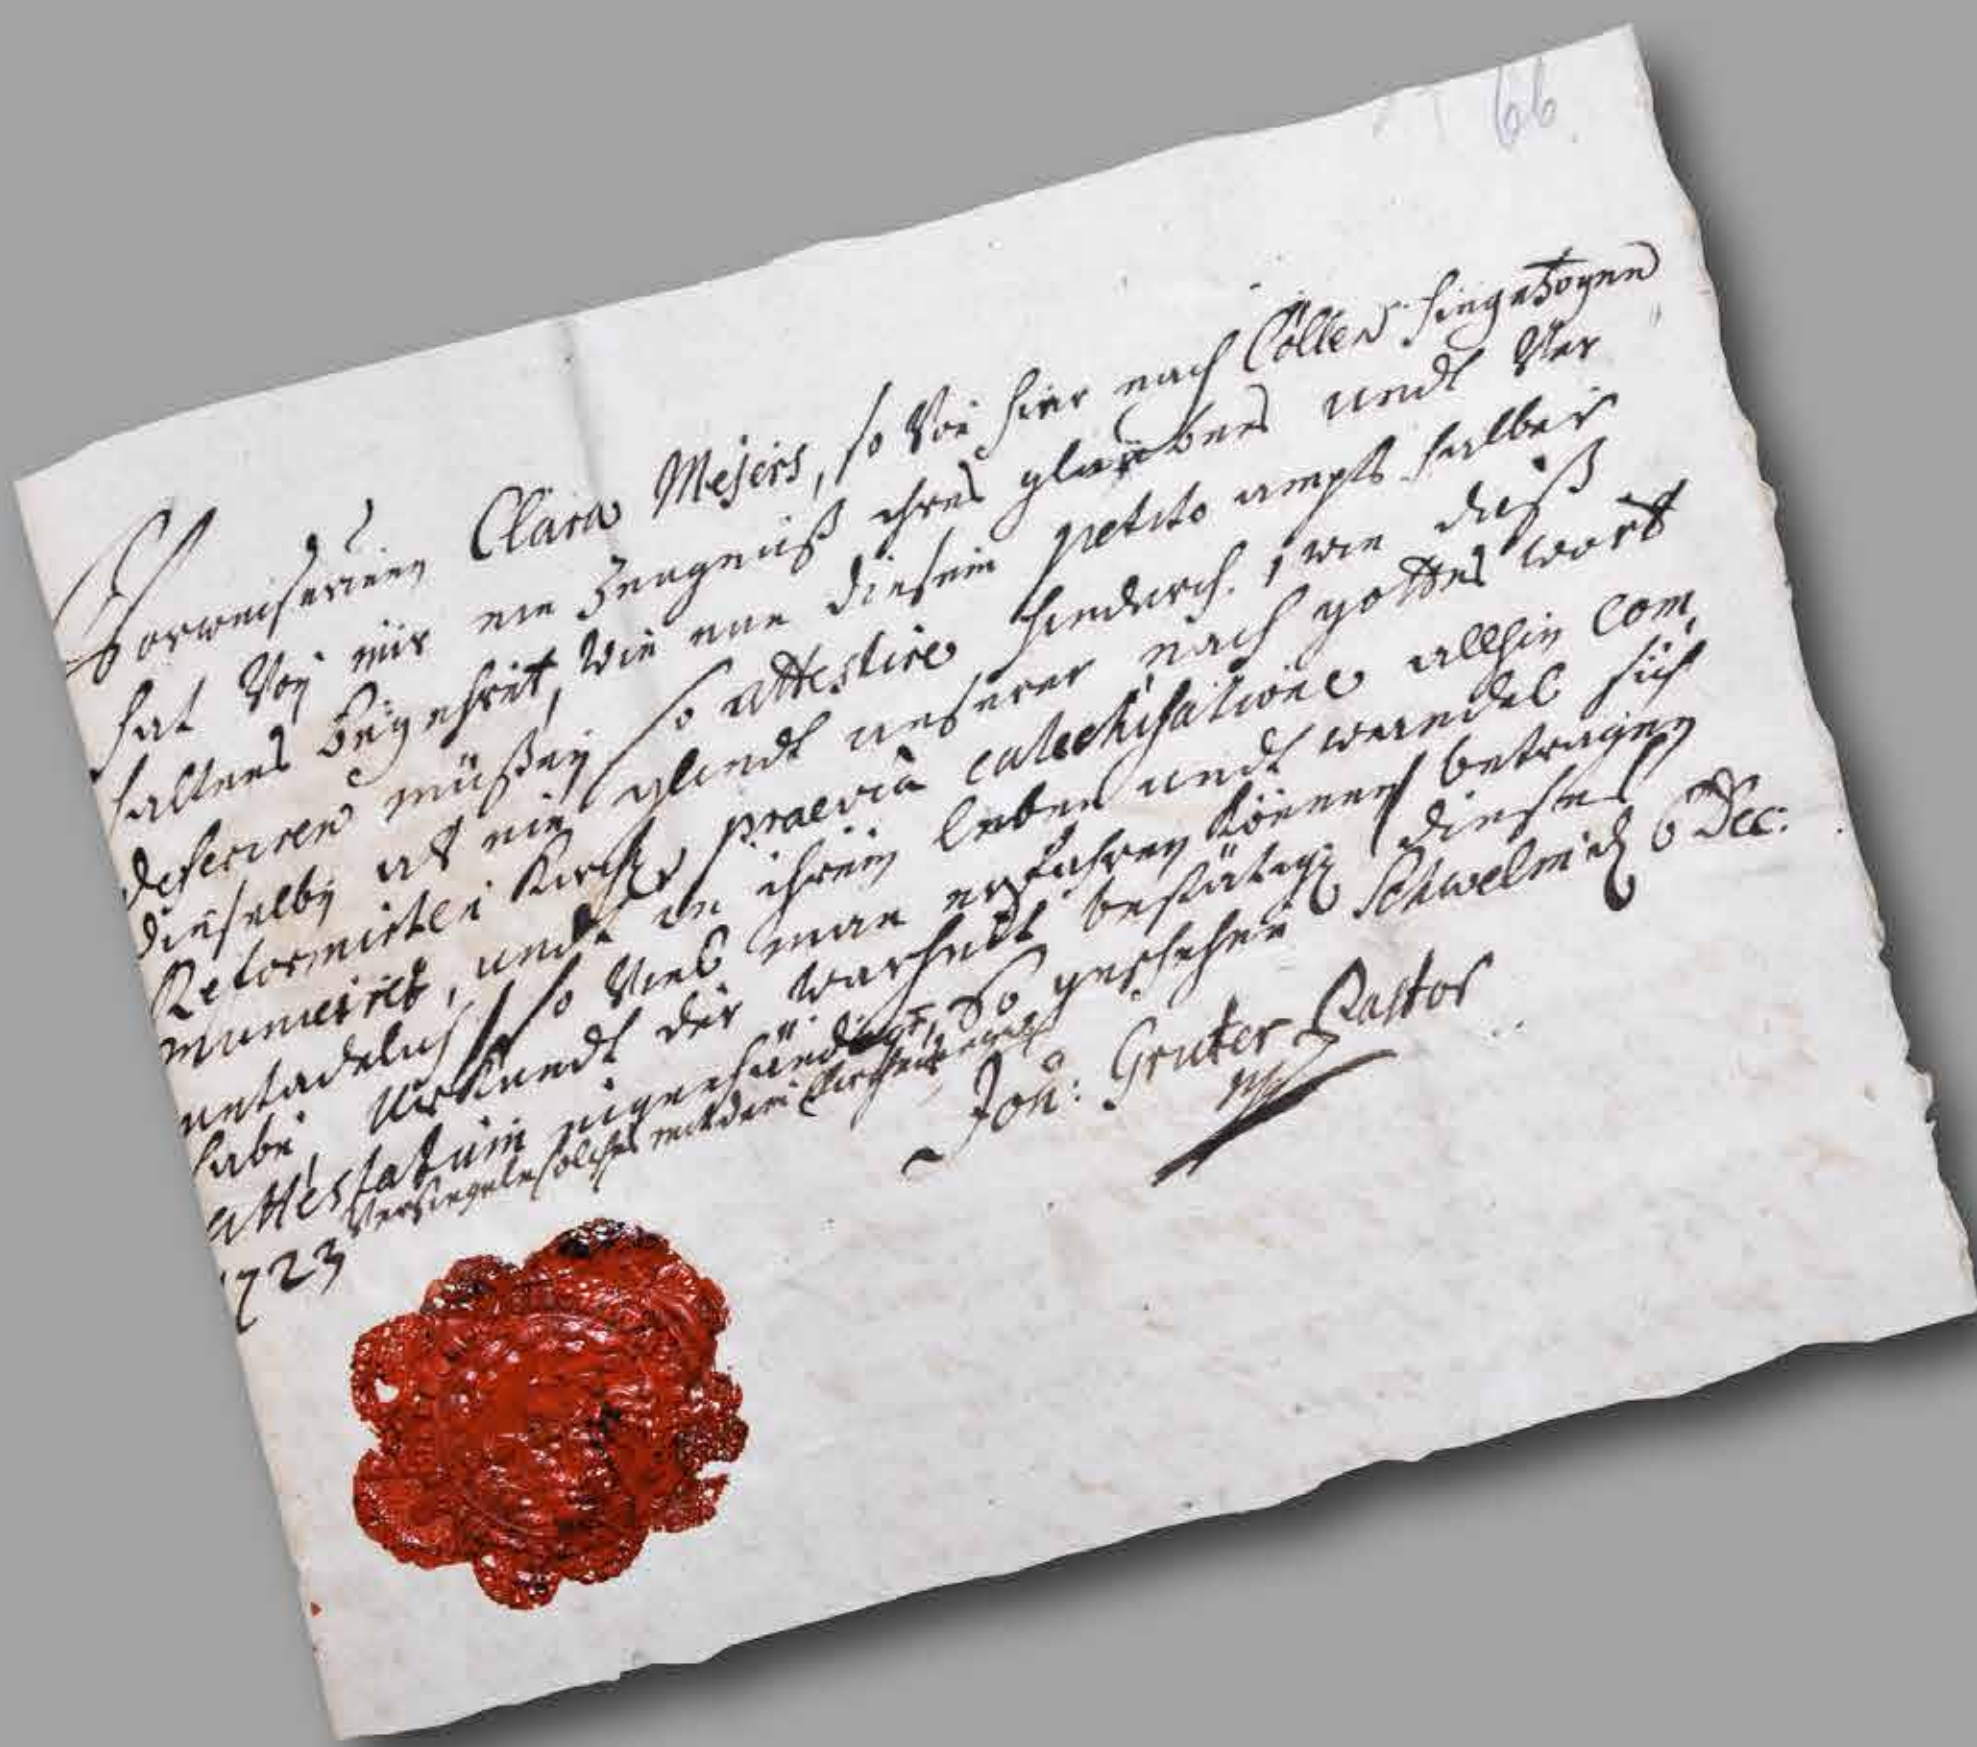 66
Vorweiserinn Clara Mejers, so Von hier nach Cöllen hingezogen
hat Von mir ein Zeugnuß ihres glaubens undt Ver
haltens begehret, Wie nun diesem petito ampts halber
deferiren müßen, so attestire hiedurch, wie daß
dieselbe als ein gliedt unserer nach gottes wort
Reformirten Kirche praeviâ catechisatione allhie com
municiret, undt in ihrem leben undt wandel sich
untadelich so Viel man erfahren können betragen
habe, Urkundt der warheit bestätige dieses
attestatum eigenhändig, So geschehen Schwelm d 6 Dec:
1723 Versiegele solches mit dem Kirchen
Joh: Gruter Pastor